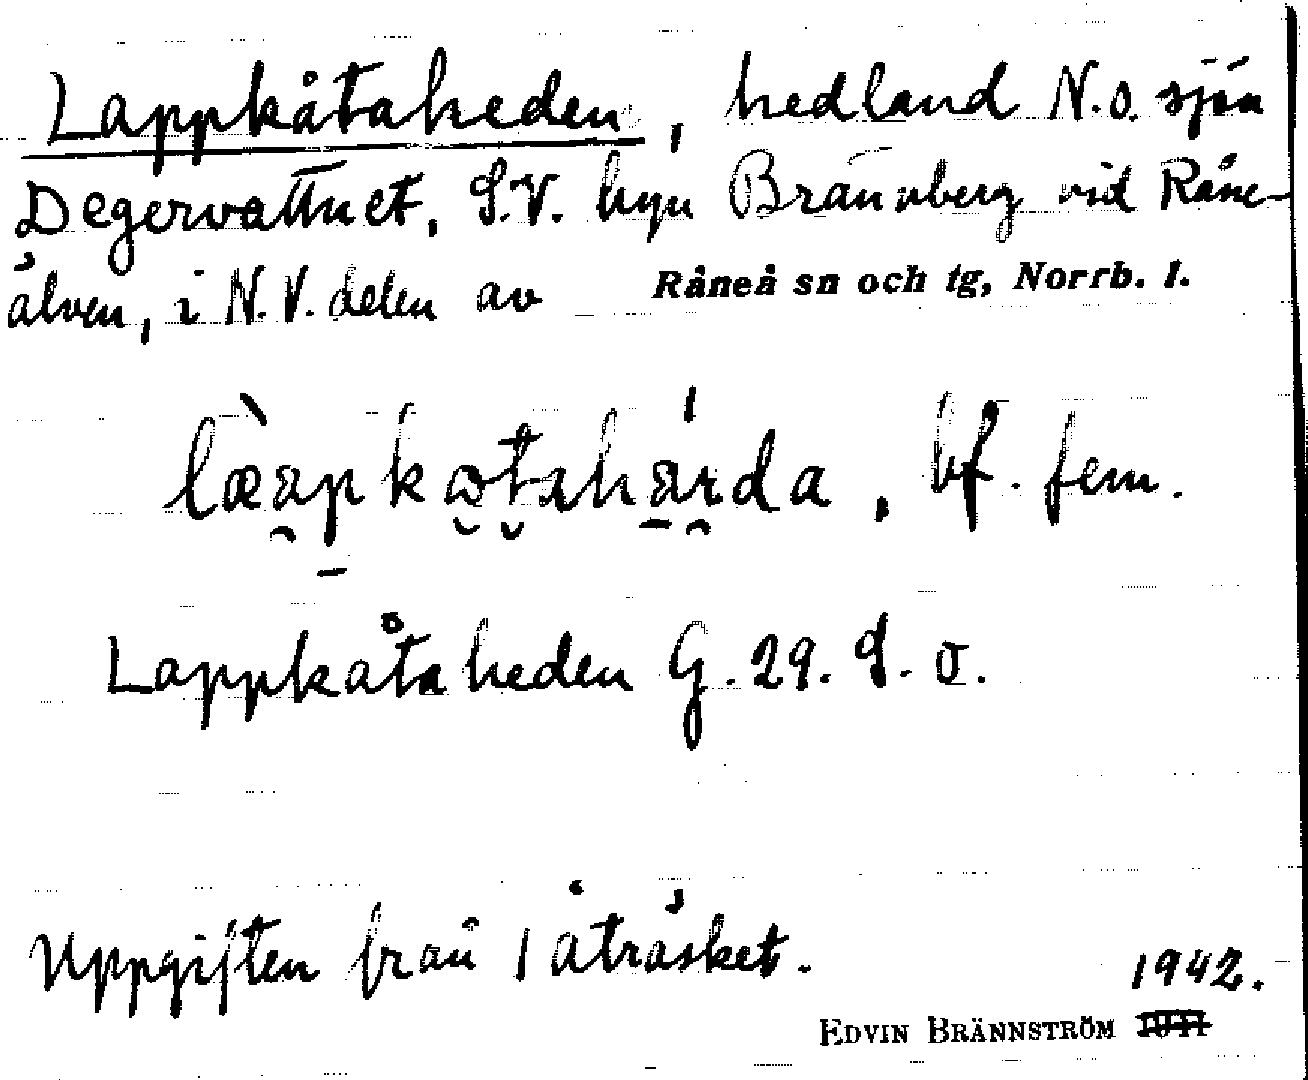 Lappkåtaheden, hedland N.o. sjön
Degervattnet, S.V. byn Brännberg vid Råne-
älven, i N.V. delen av Råneå sn och tg, Norrb. l.
bf. fem.
Lappkåtaheden G. 29. d. o.
Uppgiften från 1 åträsket.
1942.
EDVIN BRÄNNSTRÖM 1941